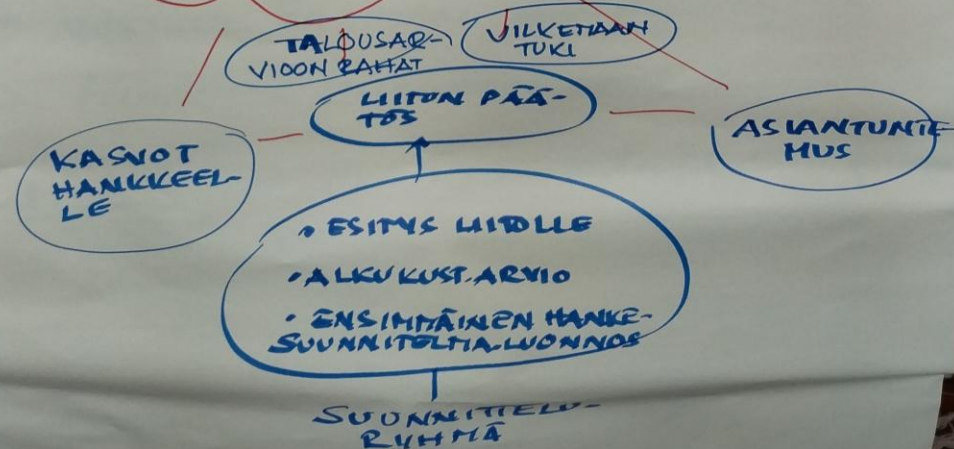 TALOUSAR-
VIOON RAHAT
VILKEMAAN
TUKI
LIITON PÄÄ-
TÖS
KASVOT
HANKKEEL-
LE
ASIANTUNTE-
MUS
• ESITYS LIITOLLE
• ALKUKUST.ARVIO
• ENSIMMÄINEN HANKE-
SUUNNITELMA.LUONNOS
SUUNNITTELU-
RYHMÄ